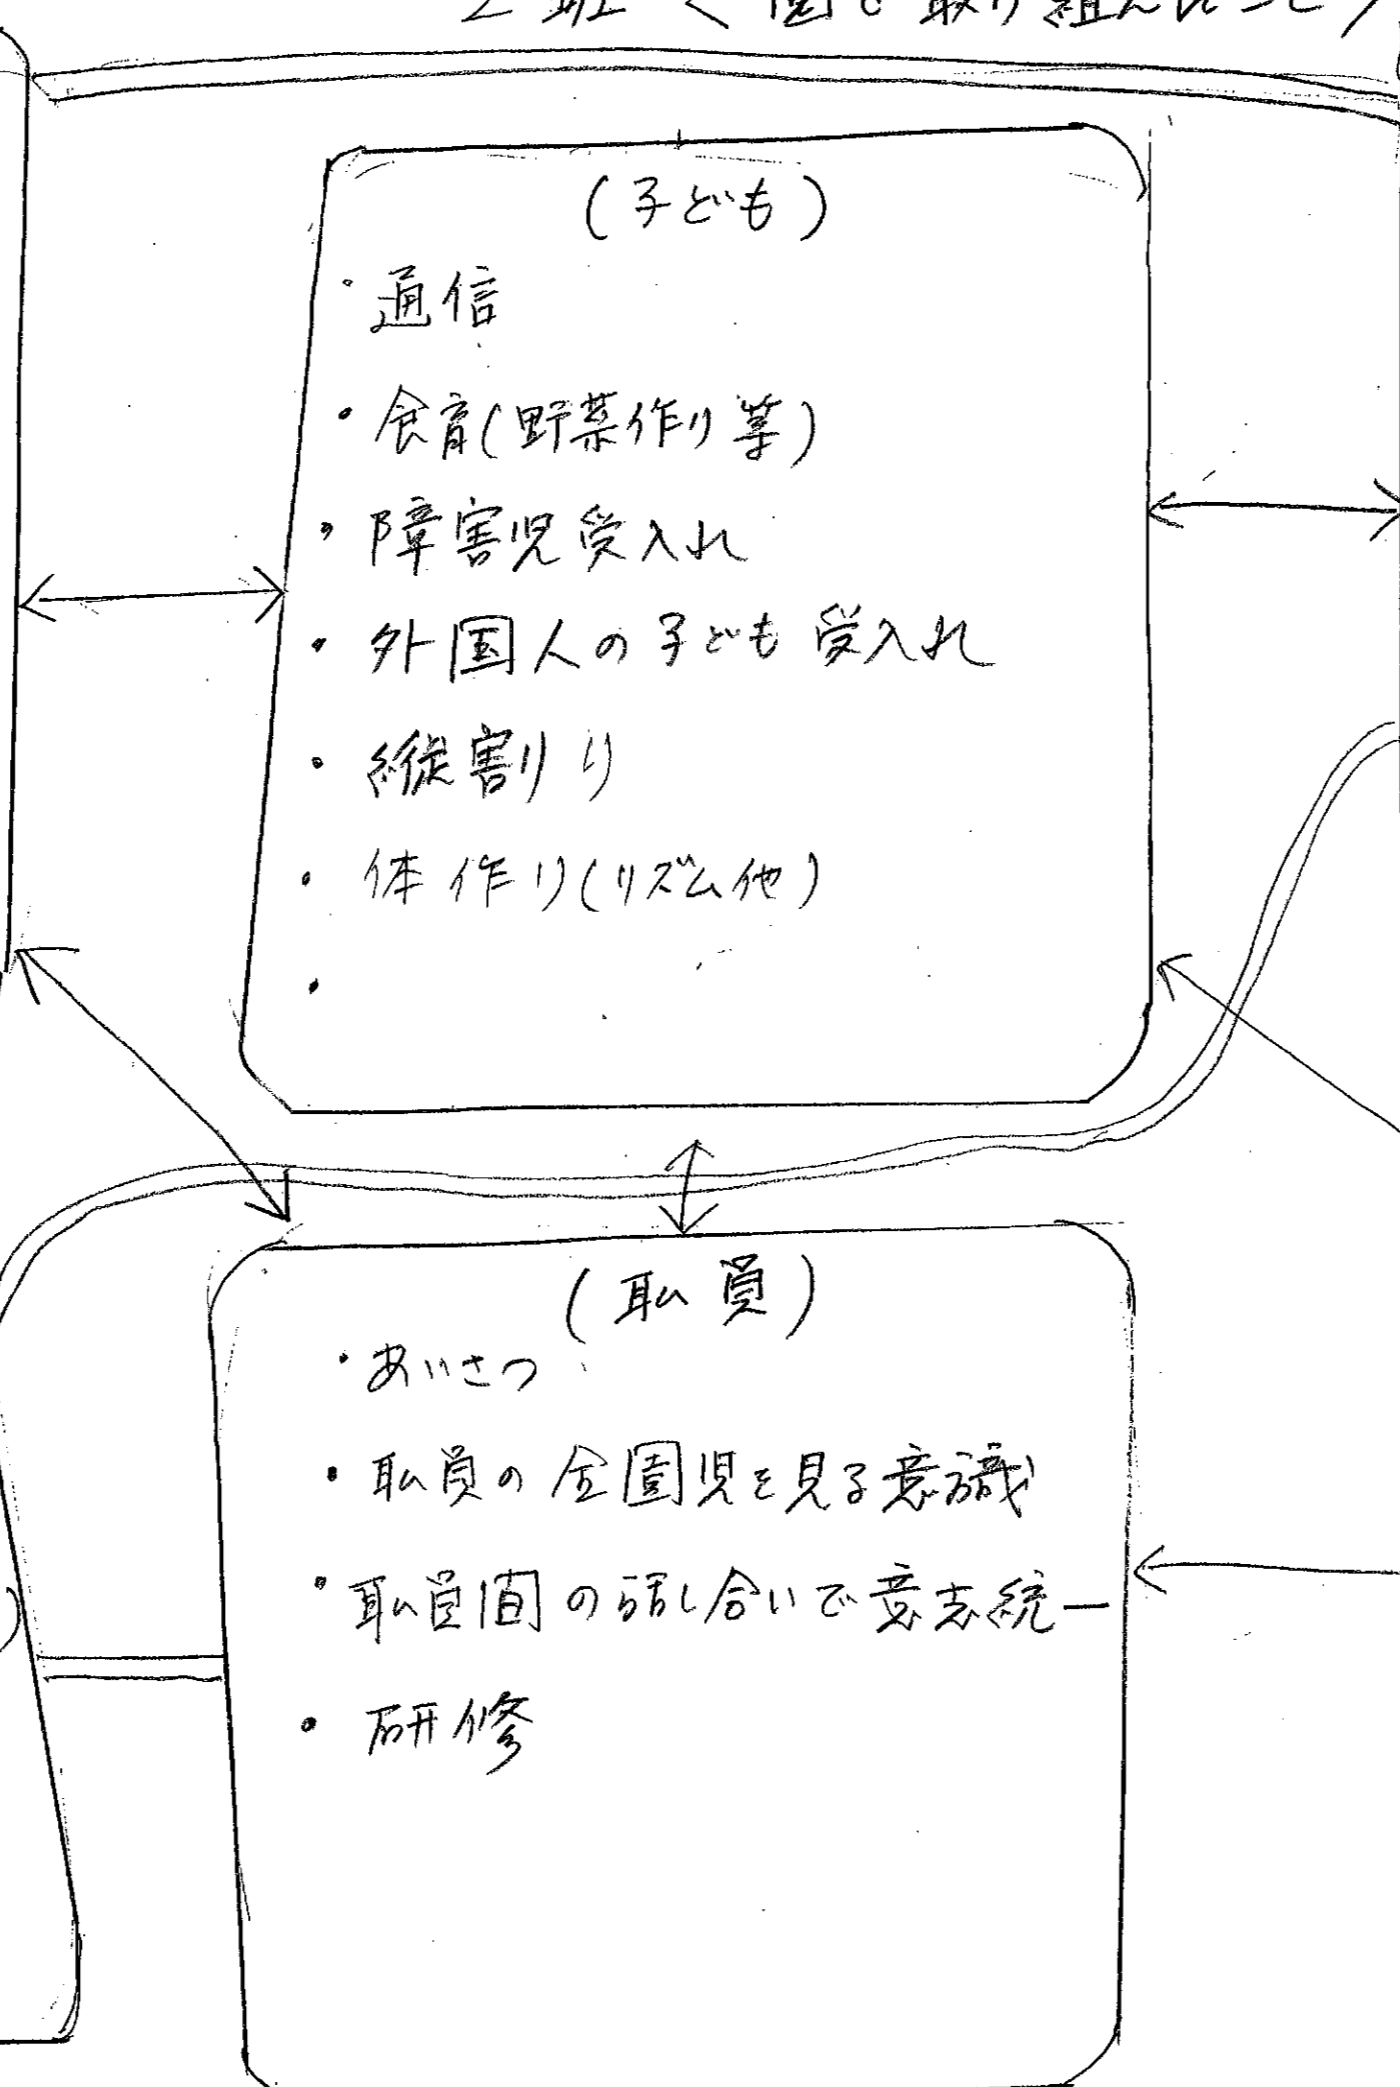 2班 <園で取り組んだこと>
(子ども)
・通信
・食育(野菜作り等)
・障害児受入れ
・外国人の子ども受入れ
・縦割り
・体作り(リズム他)
・
(耺員)
・あいさつ
・耺員の全園児を見る意識
・耺員間の話し合いで意志統一
・研修
)